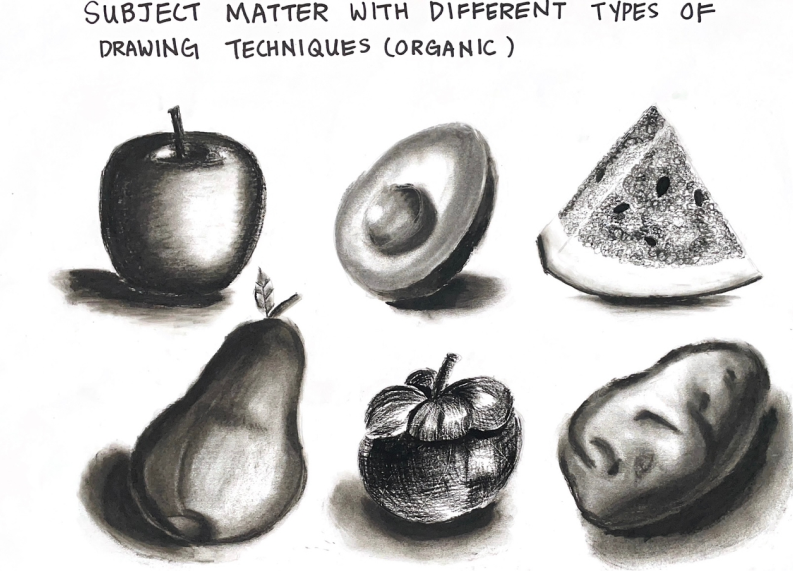 SUBJECT MATTER WITH DIFFERENT TYPES OF
DRAWING TECHNIQUES (ORGANIC)